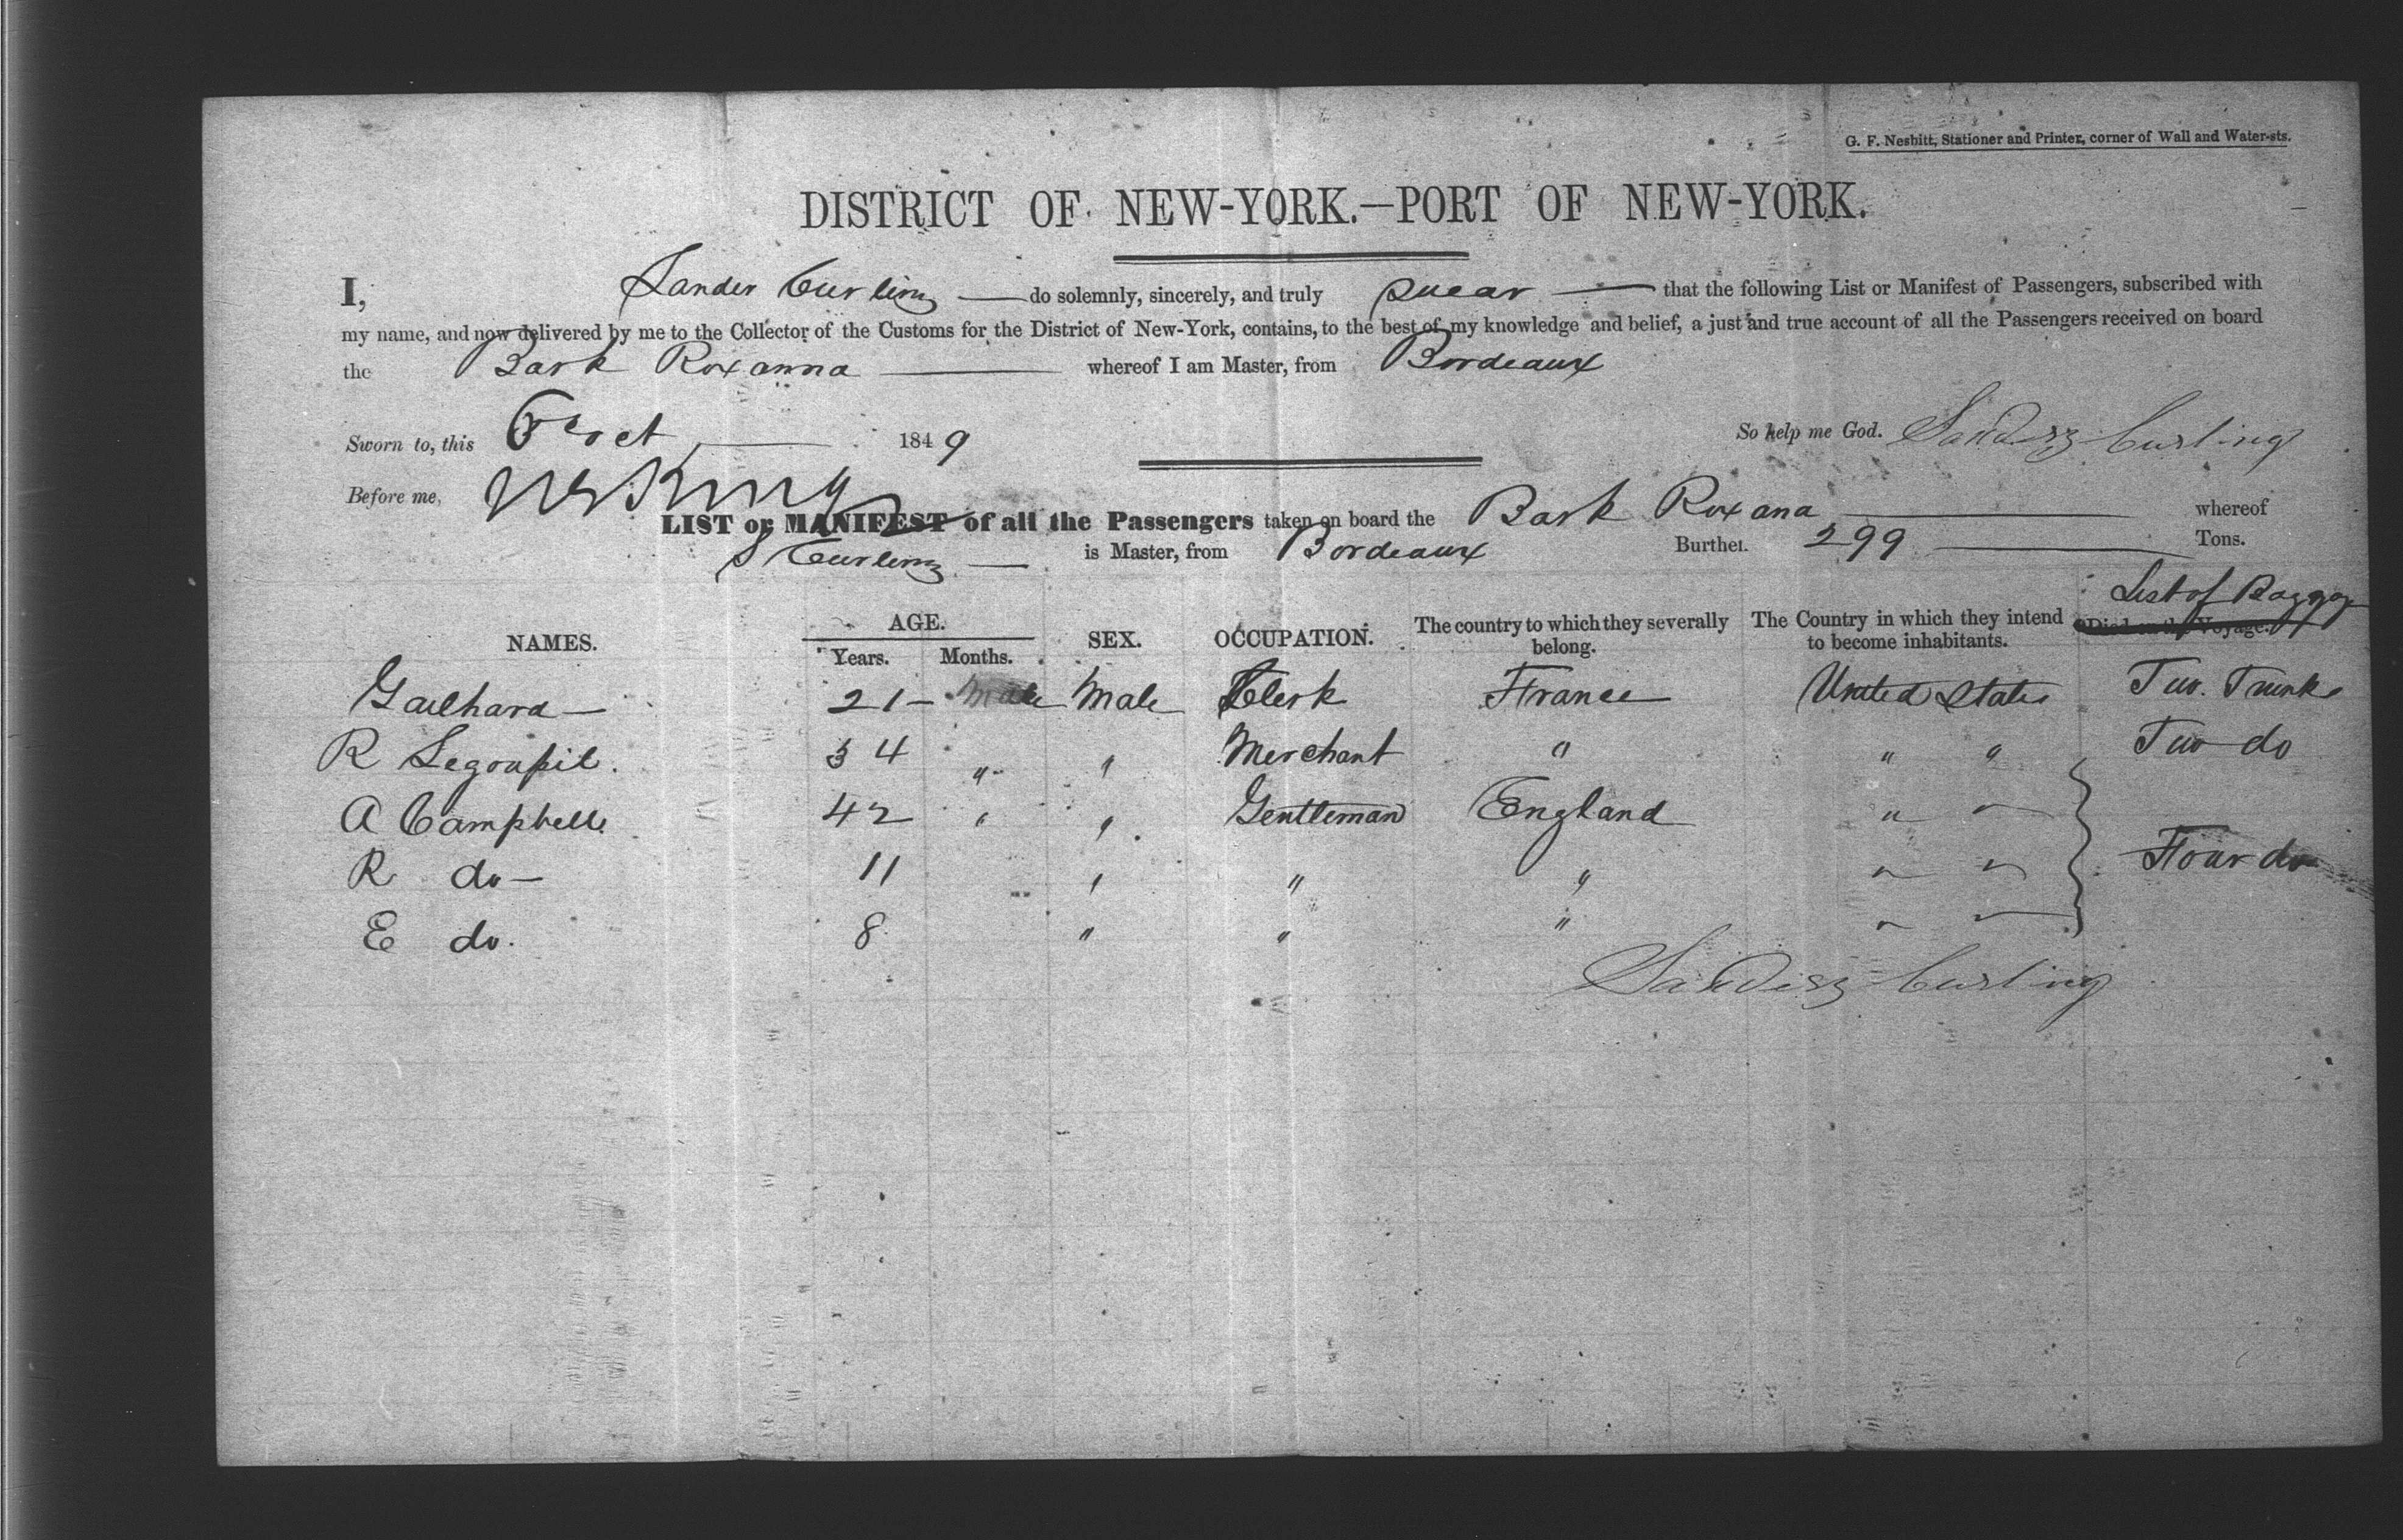 G. F. Nesbitt, Stationer and Printer, corner of Wall and Water-sts.
DISTRICT OF NEW-YORK.—PORT OF NEW-YORK.
I, Sander Curling — do solemnly, sincerely, and truly swear — that the following List or Manifest of Passengers, subscribed with
my name, and now delivered by me to the Collector of the Customs for the District of New-York, contains, to the best of my knowledge and belief, a just and true account of all the Passengers received on board
the Bark Roxanna — whereof I am Master, from Bordeaux
Sworn to, this Oct — 1849 So help me God. Sanders Curling
Before me, King
LIST or MANIFEST of all the Passengers taken on board the Bark Roxana — whereof
S Curling — is Master, from Bordeaux Burthen 299 — Tons.
List of Baggage
NAMES. AGE. SEX. OCCUPATION. The country to which they severally belong. The Country in which they intend to become inhabitants. Died on the Voyage.
Years. Months.
Gailhard — 21 – Male Male Clerk France United States Two Trunks
R Legoupil. 34 " " Merchant " " " Two do
A Campbell 42 " " Gentleman England " "
R do — 11 " " " " " Four do
E do. 8 " " " " "
Sanders Curling